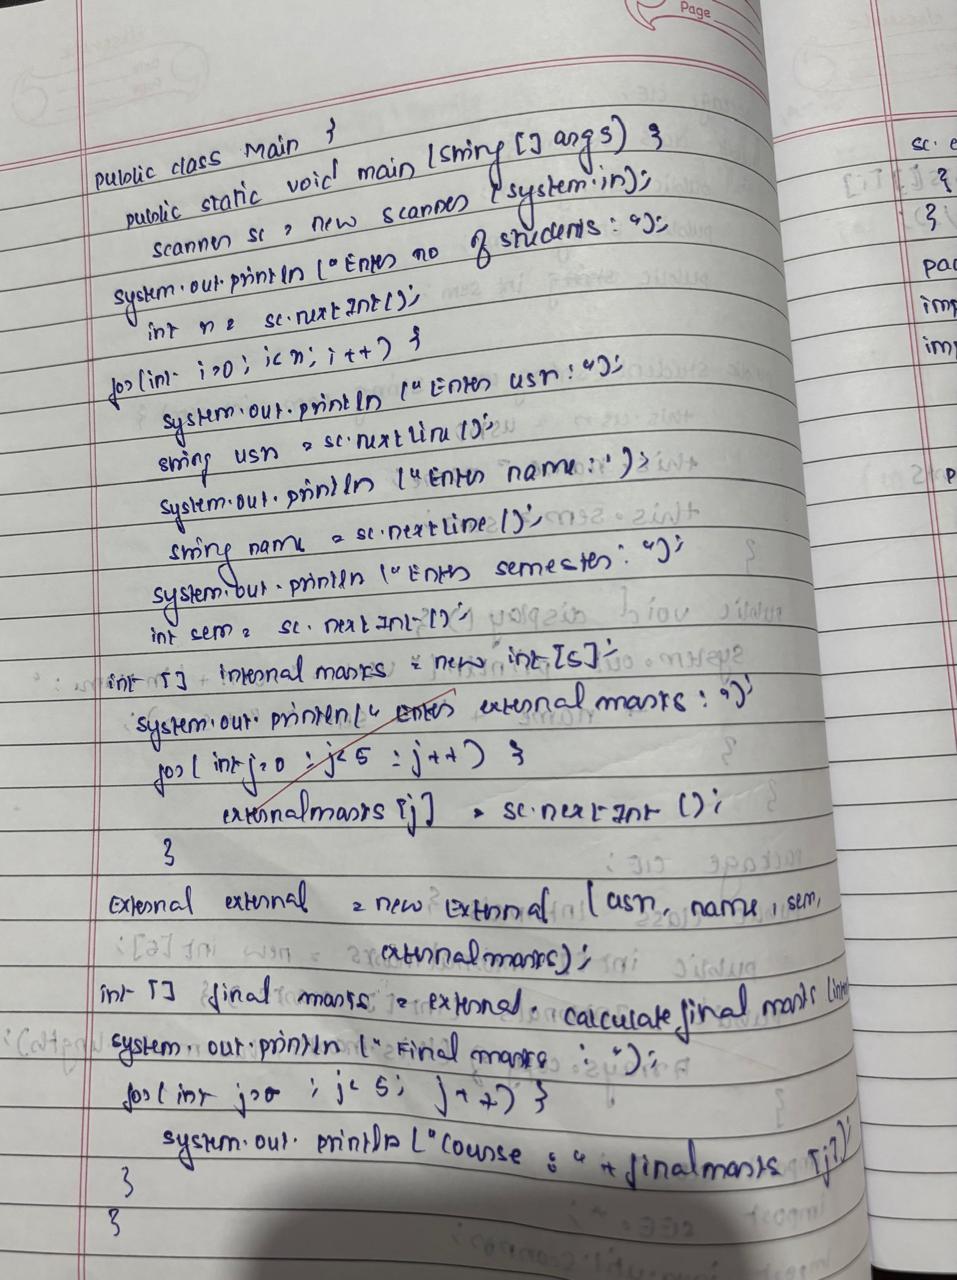 Page
public class Main {
public static void main (string [] args) {
scanner sc = new scanner (system.in);
system.out.println ("Enter no of students : ");
int n = sc.next Int();
for(int i=0; i<n; i++) {
system.out.println ("Enter usn : ");
string usn = sc.nextline ();
system.out.println ("Enter name : ");
string name = sc.nextline ();
system.out.println ("Enter semester : ");
int sem = sc.next Int ();
int [] internal marks = new int [5];
system.out.println (" Enter external marks : ");
for( int j=0 ; j<5 ; j++) {
externalmarks [j] = sc.next Int ();
}
External external = new External (usn, name, sem,
externalmarks);
int [] final marks = external. calculate final marks (
system. out.println (" Final marks : ");
for( int j=0 ; j< 5; j++) {
system.out. println ("Course : " + finalmarks [j]);
}
}
sc.
{
}